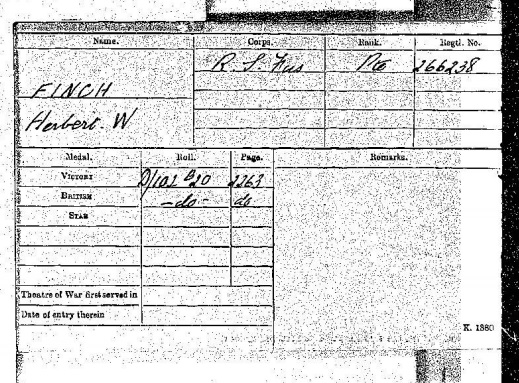 Name. Corps. Rank. Regtl. No.
R. S. Fus Pte 266238
FINCH
Herbert. W
Medal. Roll. Page. Remarks.
VICTORY D/102 B20 2263
BRITISH -do- do
STAR
Theatre of War first served in
Date of entry therein
K. 1380